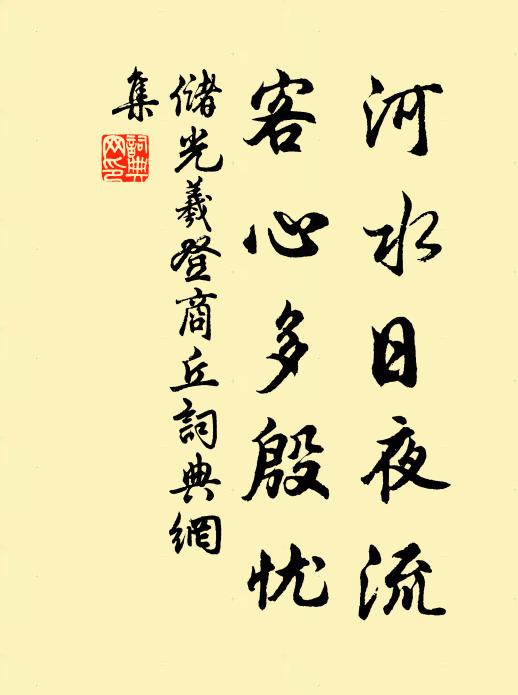 河水日夜流
客心多殷忧
儲光羲登商丘詞典網
集
詞典网印